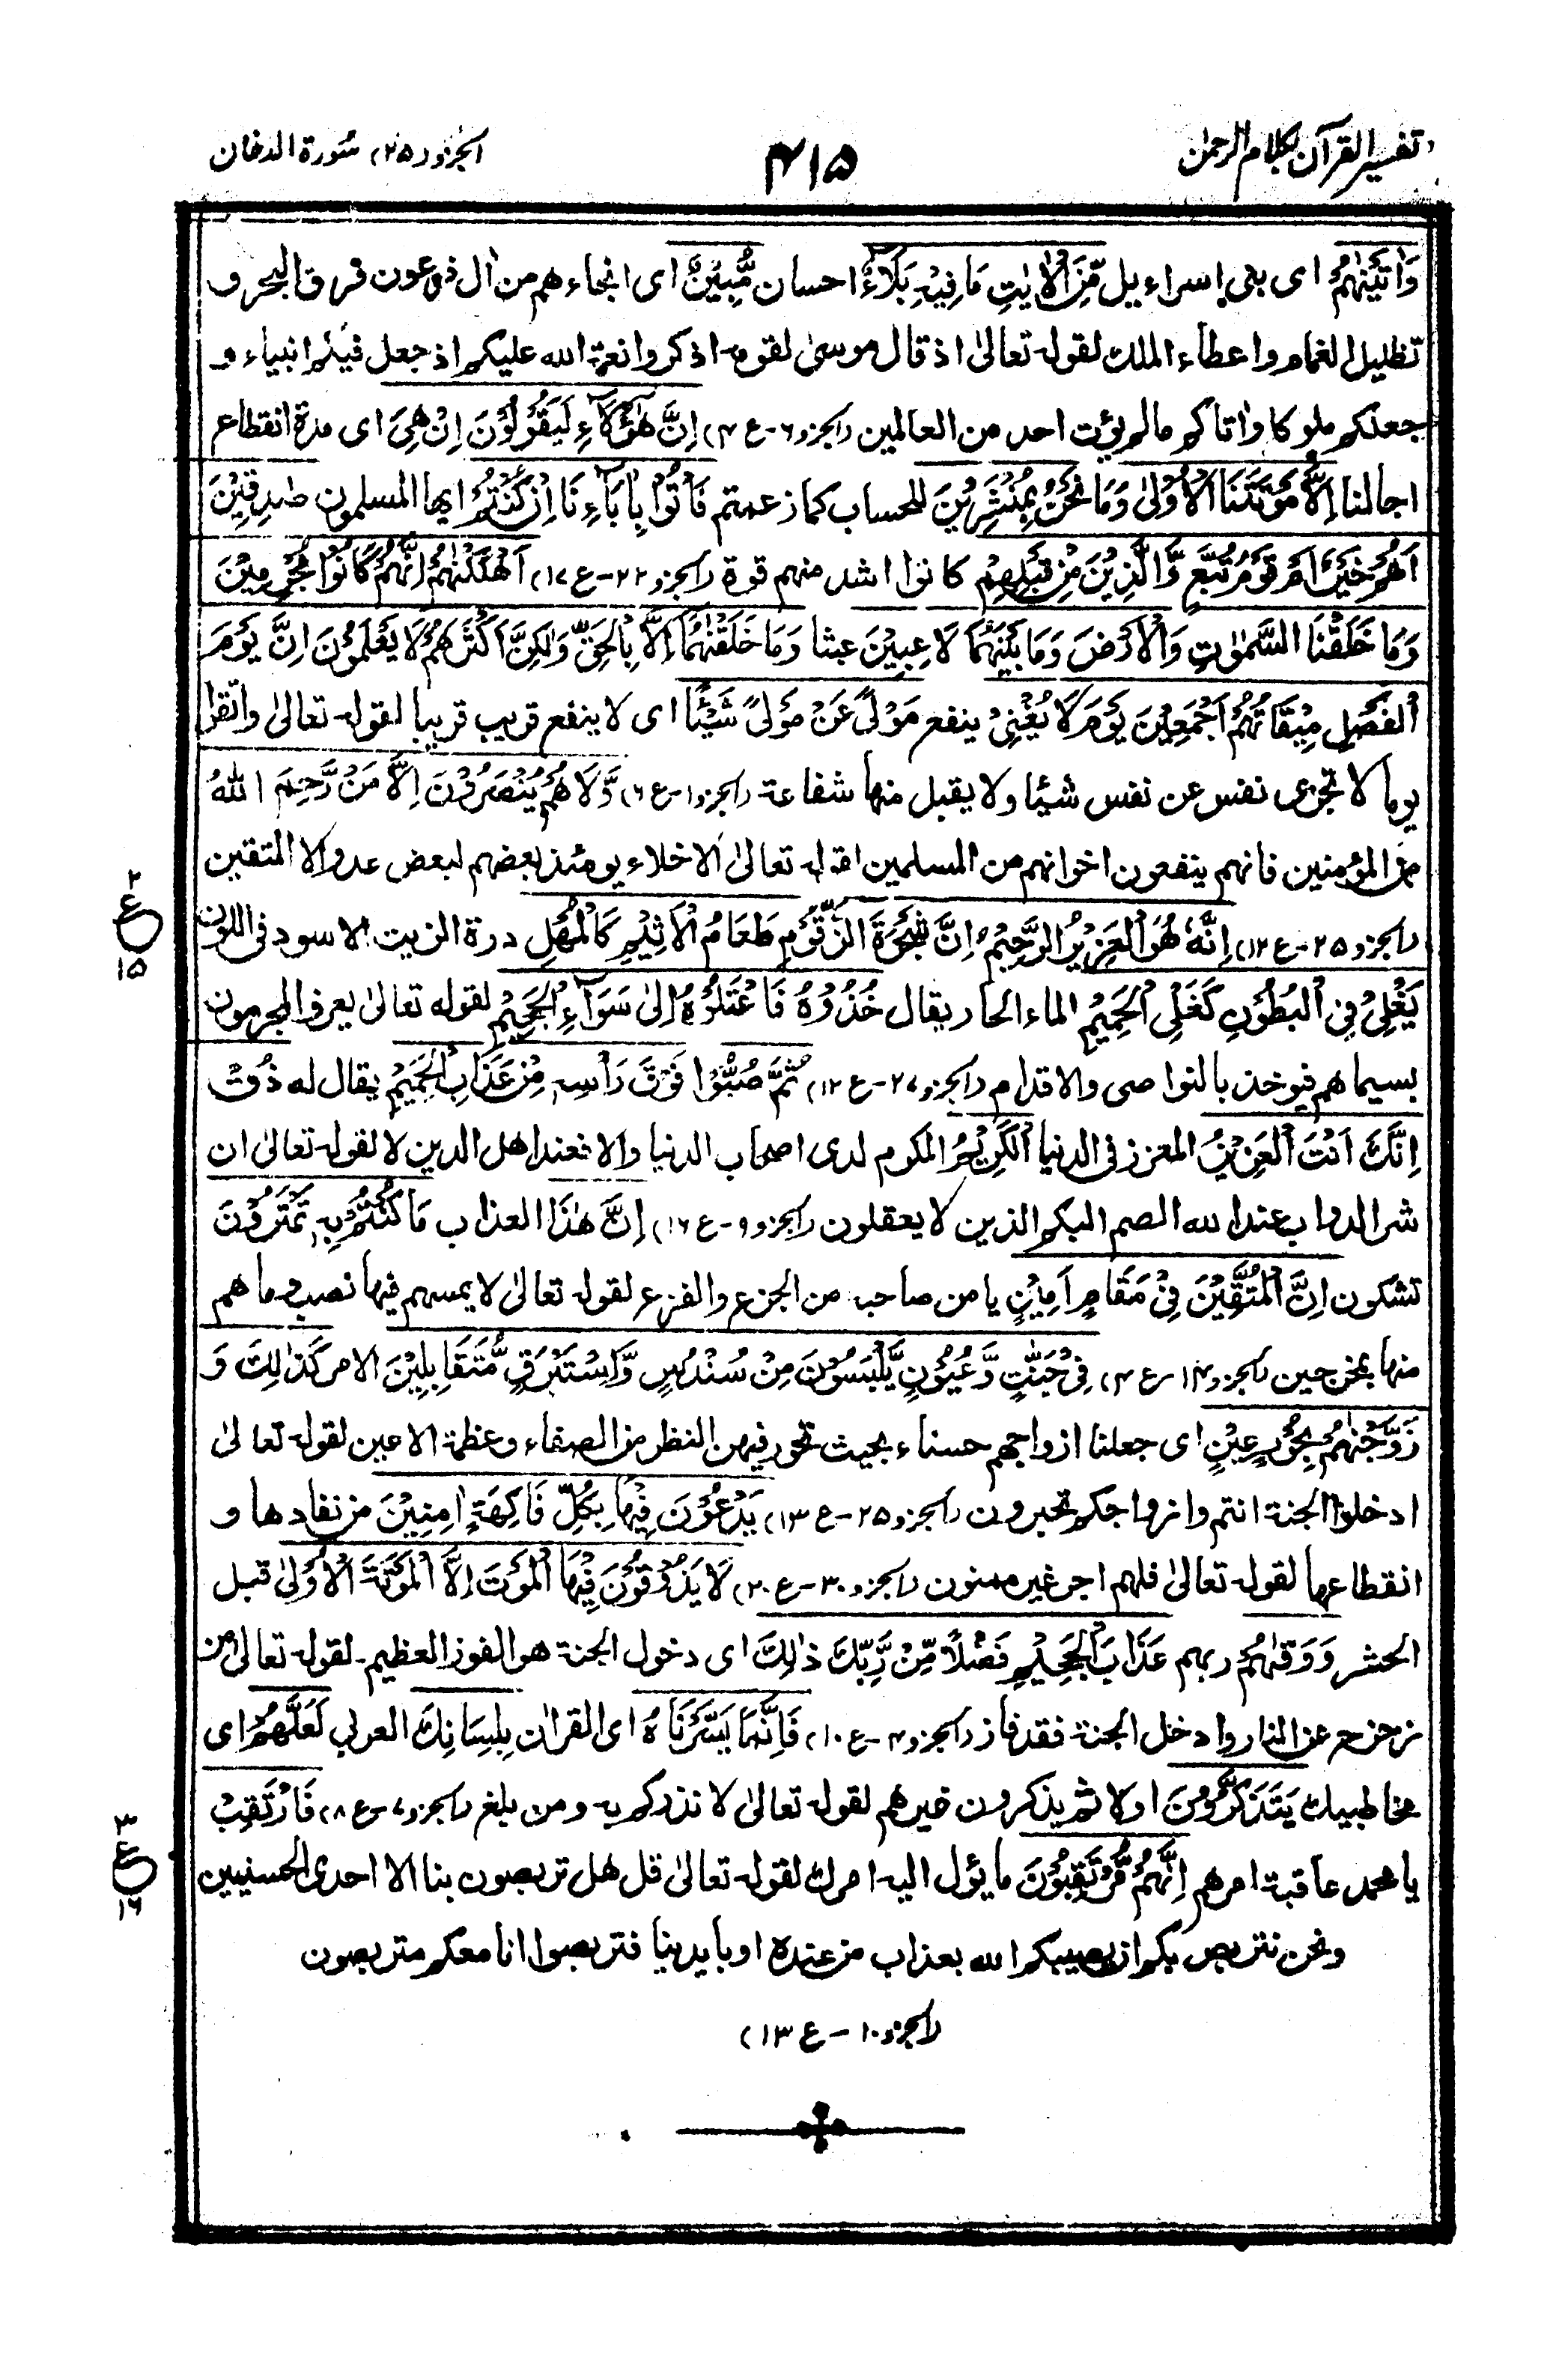 تفسیر القرآن بکلام الرحمٰن
۴۱۵
الجزو (۲۵) سُورة الدخان
وَاٰتَيْنٰهُمْ ای بنی اسراءیل مِّنَ الْاٰيٰتِ مَا فِيْهِ بَلٰٓؤٌ احسان مُّبِيْنٌ ای انجاءهم من اٰل فرعون فرق البحر و
تظلیل الغمام واعطاء الملك لقوله تعالیٰ اذ قال موسیٰ لقومه اذکروا نعمة الله علیکم اذ جعل فیکم انبیاء و
جعلکم ملوکا واٰتاکم مالم یؤت احد من العالمین (الجزو ۶ - ع ۴) اِنَّ هٰٓؤُلَآءِ لَيَقُوْلُوْنَ اِنْ هِیَ ای مدة انقطاع
اجالنا اِلَّا مَوْتَتُنَا الْاُوْلٰی وَمَا نَحْنُ بِمُنْشَرِيْنَ للحساب کما زعمتم فَاْتُوْا بِاٰبَآءِنَا اِنْ كُنْتُمْ ایها المسلمون صٰدِقِيْنَ
اَهُمْ خَيْرٌ اَمْ قَوْمُ تُبَّعٍ وَّالَّذِيْنَ مِنْ قَبْلِهِمْ کانوا اشد منهم قوة (الجزو ۲۲ - ع ۱۷) اَهْلَكْنٰهُمْ اِنَّهُمْ كَانُوْا مُجْرِمِيْنَ
وَمَا خَلَقْنَا السَّمٰوٰتِ وَالْاَرْضَ وَمَا بَيْنَهُمَا لَاعِبِيْنَ عبثا وَمَا خَلَقْنٰهُمَا اِلَّا بِالْحَقِّ وَلٰكِنَّ اَكْثَرَهُمْ لَا يَعْلَمُوْنَ اِنَّ يَوْمَ
الْفَصْلِ مِيْقَاتُهُمْ اَجْمَعِيْنَ يَوْمَ لَا يُغْنِیْ ینفع مَوْلًی عَنْ مَوْلًی شَيْئًا ای لا ینفع قریب قریبا لقوله تعالیٰ واتقوا
یوما لا تجزی نفس عن نفس شیئا ولا یقبل منها شفاعة (الجزو ۱ - ع ۶) وَّلَا هُمْ يُنْصَرُوْنَ اِلَّا مَنْ رَّحِمَ اللهُ
من المؤمنین فانهم ینفعون اخوانهم من المسلمین لقوله تعالیٰ الاخلاء یومئذ بعضهم لبعض عدو الا المتقین
(الجزو ۲۵ - ع ۱۲) اِنَّهٗ هُوَ الْعَزِيْزُ الرَّحِيْمُ اِنَّ شَجَرَةَ الزَّقُّوْمِ طَعَامُ الْاَثِيْمِ كَالْمُهْلِ درة الزیت الاسود فی اللون
يَغْلِیْ فِی الْبُطُوْنِ كَغَلْیِ الْحَمِيْمِ الماء الحار یقال خُذُوْهُ فَاعْتِلُوْهُ اِلٰی سَوَآءِ الْجَحِيْمِ لقوله تعالیٰ یعرف المجرمون
بسیماهم فیوخذ بالنواصی والاقدام (الجزو ۲۷ - ع ۱۲) ثُمَّ صُبُّوْا فَوْقَ رَاْسِهٖ مِنْ عَذَابِ الْحَمِيْمِ یقال له ذُقْ
اِنَّكَ اَنْتَ الْعَزِيْزُ المعزز فی الدنیا الْكَرِيْمُ المکرم لدی اصحاب الدنیا والا فعند اهل الدین لا لقوله تعالیٰ ان
شر الدواب عند الله الصم البکم الذین لا یعقلون (الجزو ۹ - ع ۱۶) اِنَّ هٰذَا العذاب مَا كُنْتُمْ بِهٖ تَمْتَرُوْنَ
تشکون اِنَّ الْمُتَّقِيْنَ فِیْ مَقَامٍ اَمِيْنٍ یامن صاحبه من الجزع والفزع لقوله تعالیٰ لا یمسهم فیها نصب وما هم
منها بمخرجین (الجزو ۱۴ - ع ۴) فِیْ جَنّٰتٍ وَّعُيُوْنٍ يَّلْبَسُوْنَ مِنْ سُنْدُسٍ وَّاِسْتَبْرَقٍ مُّتَقَابِلِيْنَ الامر كَذٰلِكَ وَ
زَوَّجْنٰهُمْ بِحُوْرٍ عِيْنٍ ای جعلنا ازواجهم حسناء بحیث تحور فیهن النظر من الصفاء وعظمة الاعین لقوله تعالیٰ
ادخلوا الجنة انتم وازواجکم تحبرون (الجزو ۲۵ - ع ۱۳) يَدْعُوْنَ فِيْهَا بِكُلِّ فَاكِهَةٍ اٰمِنِيْنَ من نفادها و
انقطاعها لقوله تعالیٰ فلهم اجر غیر ممنون (الجزو ۳۰ - ع ۲۰) لَا يَذُوْقُوْنَ فِيْهَا الْمَوْتَ اِلَّا الْمَوْتَةَ الْاُوْلٰی قبل
الحشر وَوَقٰهُمْ ربهم عَذَابَ الْجَحِيْمِ فَضْلًا مِّنْ رَّبِّكَ ذٰلِكَ ای دخول الجنة هو الفوز العظیم لقوله تعالیٰ من
زحزح عن النار وادخل الجنة فقد فاز (الجزو ۴ - ع ۱۰) فَاِنَّمَا يَسَّرْنَاهُ ای القراٰن بِلِسَانِكَ العربی لَعَلَّهُمْ ای
مخاطبیك يَتَذَكَّرُوْنَ اولا ثم یذکرون غیرهم لقوله تعالیٰ لانذرکم به ومن بلغ (الجزو ۷ - ع ۸) فَارْتَقِبْ
یا محمد عاقبة امرهم اِنَّهُمْ مُّرْتَقِبُوْنَ ما یؤل الیه امرك لقوله تعالیٰ قل هل تربصون بنا الا احدی الحسنیین
ونحن نتربص بکم ان یصیبکم الله بعذاب من عنده او بایدینا فتربصوا انا معکم متربصون
(الجزو ۱۰ - ع ۱۳)
۲
ع
۱۵
۳
ع
۱۶